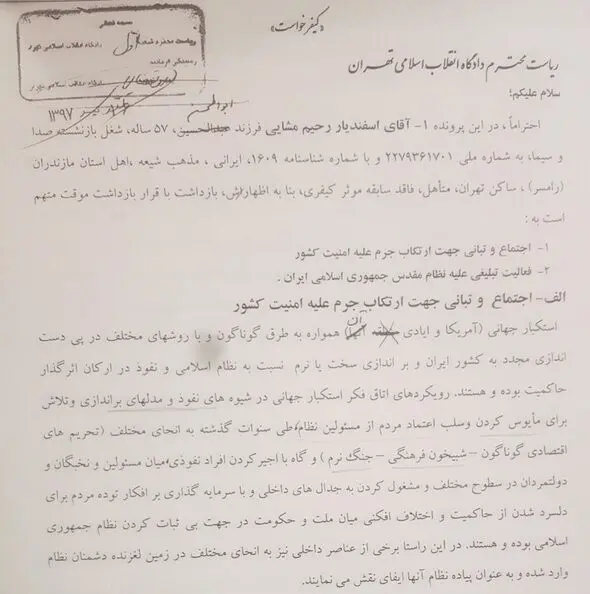 «کیفرخواست»
بسمه تعالی
ریاست محترم شعبه
دادگاه انقلاب اسلامی تهران
ریاست محترم دادگاه انقلاب اسلامی تهران
سلام علیکم؛
۱۳۹۷
ابوالحسن
احتراماً، در این پرونده ۱- آقای اسفندیار رحیم مشایی فرزند عبدالحسین، ۵۷ ساله، شغل بازنشسته صدا
و سیما، به شماره ملی ۲۲۷۹۳۶۱۷۰۱ و با شماره شناسنامه ۱۶۰۹، ایرانی ، مذهب شیعه ،اهل استان مازندران
(رامسر) ، ساکن تهران، متأهل، فاقد سابقه موثر کیفری، بنا به اظهارش، بازداشت با قرار بازداشت موقت متهم
است به :
۱- اجتماع و تبانی جهت ارتکاب جرم علیه امنیت کشور
۲- فعالیت تبلیغی علیه نظام مقدس جمهوری اسلامی ایران .
الف- اجتماع و تبانی جهت ارتکاب جرم علیه امنیت کشور
استکبار جهانی (آمریکا و ایادی آن) همواره به طرق گوناگون و با روشهای مختلف در پی دست
اندازی مجدد به کشور ایران و بر اندازی سخت یا نرم نسبت به نظام اسلامی و نفوذ در ارکان اثرگذار
حاکمیت بوده و هستند. رویکردهای اتاق فکر استکبار جهانی در شیوه های نفوذ و مدلهای براندازی وتلاش
برای مأیوس کردن وسلب اعتماد مردم از مسئولین نظام، طی سنوات گذشته به انحای مختلف (تحریم های
اقتصادی گوناگون – شبیخون فرهنگی – جنگ نرم ) و گاه با اجیر کردن افراد نفوذی، میان مسئولین و نخبگان و
دولتمردان در سطوح مختلف و مشغول کردن به جدال های داخلی و با سرمایه گذاری بر افکار توده مردم برای
دلسرد شدن از حاکمیت و اختلاف افکنی میان ملت و حکومت در جهت بی ثبات کردن نظام جمهوری
اسلامی بوده و هستند. در این راستا برخی از عناصر داخلی نیز به انحای مختلف در زمین لغزنده دشمنان نظام
وارد شده و به عنوان پیاده نظام آنها ایفای نقش می نمایند.